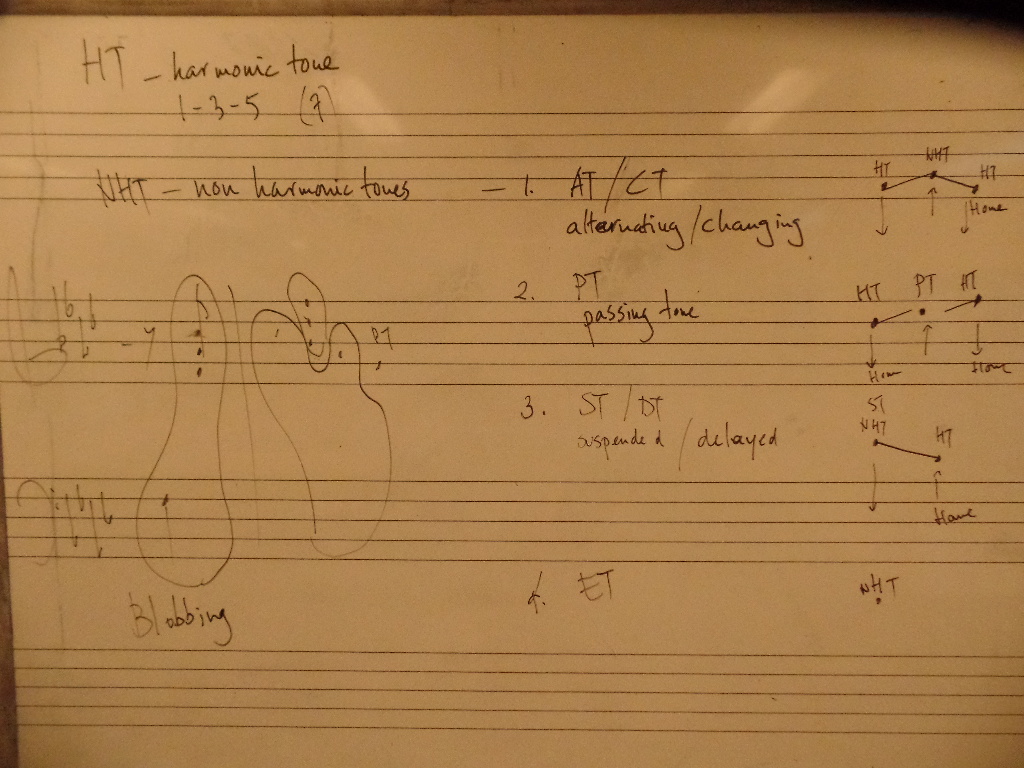 HT – harmonic tone
1-3-5 (7)
NHT – non harmonic tones – 1. AT / CT
alternating / changing
HT NHT HT
Home
2. PT
passing tone
HT PT HT
Home Home
PT
3. ST / DT
suspended / delayed
ST
NHT HT
Home
4. ET
NHT
Blobbing